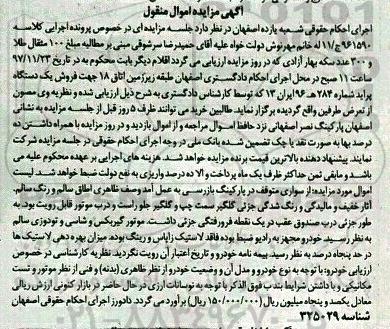 آگهی مزایده اموال منقول
اجرای احکام حقوقی شعبه یازده اصفهان در نظر دارد جلسه مزایده ای در خصوص پرونده اجرایی کلاسه
۹۶۱۵۹۰ ج/۱۱ له خانم مهرنوش دولت خواه علیه آقای حمیدرضا سرشوقی مبنی بر مطالبه مبلغ ۱۰۰ مثقال طلا
و ۳۰۰ عدد سکه بهار آزادی که در روز مزایده ارزیابی می گردد اقلام دیگر بابت محکوم به در تاریخ ۹۷/۱۱/۲۳
ساعت ۱۱ صبح در محل اجرای احکام دادگستری اصفهان طبقه زیرزمین اتاق ۱۸ جهت فروش یک دستگاه
پراید شماره ۷۸۴هـ۹۶ ایران ۱۳ که توسط کارشناس دادگستری به شرح ذیل ارزیابی شده و نظریه وی مصون
از تعرض طرفین واقع گردیده برگزار نماید. طالبین خرید می توانند ظرف ۵ روز قبل از جلسه مزایده به نشانی
اصفهان پارکینگ نصر اصفهانی نزد حافظ اموال مراجعه و از اموال بازدید و در روز مزایده با همراه داشتن ده
درصد بها به صورت نقد یا چک تضمین شده بانک ملی در وجه اجرای احکام حقوقی در جلسه مزایده شرکت
نمایند. پیشنهاد دهنده بالاترین قیمت برنده مزایده خواهد شد. هزینه های اجرایی بر عهده محکوم علیه می
باشد و مابقی ثمن حداکثر ظرف یک ماه پرداخت و الا ده درصد واریزی به نفع دولت ضبط خواهد شد. لیست
اموال مورد مزایده: از سواری متوقف در پارکینگ بازرسی به عمل آمد وصف ظاهری اطاق سالم و رنگ سالم.
آثار خفیف و مالیدگی و رنگ شدگی جزئی گلگیر سمت چپ و گلگیر جلو راست و درب موتور قابل رویت بود. به
طور جزئی درب صندوق عقب در یک نقطه فرورفتگی جزئی داشت. موتور گیربکس و شاسی و تودوزی سالم
به نظر رسید. خودرو مجهز به رادیو ضبط بوده فاقد لاستیک زاپاس و رینگ بوده. میزان بهره دهی لاستیک ها
در حد پنجاه درصد به نظر رسید. بیمه نامه خودرو و تاریخ اعتبار آن رویت نگردید. نظریه کارشناسی در خصوص
ارزیابی خودرو: با توجه به نوع خودرو و مدل آن و وضعیت خودرو از نظر ظاهری (بدنه) و فنی از نظر موتور و تست
مکانیکی و با داشتن شرایط بندب فوق الذکر با توجه به نوسانات ارزی در حال حاضر در بازار کنونی ارزش ریالی
معادل یکصد و پنجاه میلیون ریال (۱۵۰/۰۰۰/۰۰۰ ریال) برآورد می گردد. دادورز اجرای احکام حقوقی اصفهان
شناسه ۳۲۵۰۲۹